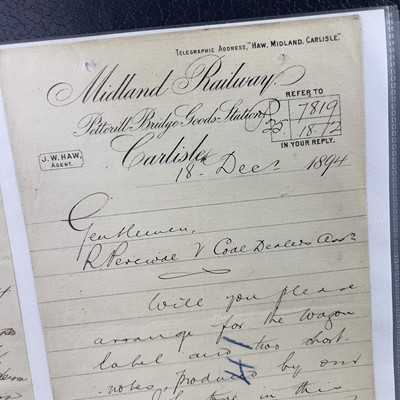 TELEGRAPHIC ADDRESS, "HAW, MIDLAND, CARLISLE."
Midland Railway.
REFER TO
7819
25 18.12
IN YOUR REPLY.
Petterill-Bridge-Goods-Station,
J. W. HAW,
AGENT.
Carlisle
18 Dec 1894
Gentlemen,
R Percival v Coal Dealers Assn
Will you please
arrange for the wagon
label and two short
notes, produced by our
in this